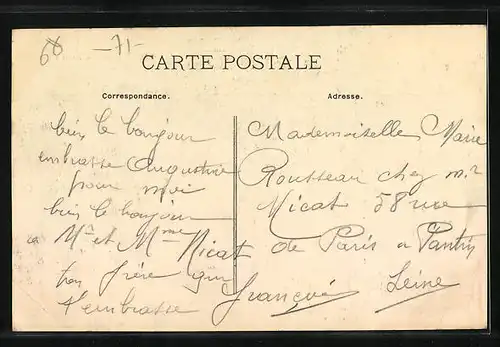 68 -71-
CARTE POSTALE
Correspondance.
Adresse.
bien le bonjour
embrasse Augustine
pour moi
bien le bonjour
a Mr et Mme Micat
ton frère qui
t'embrasse
François
Mademoiselle Marie
Rousseau chez mr
Micat 58 rue
de Paris a Pantin
Seine